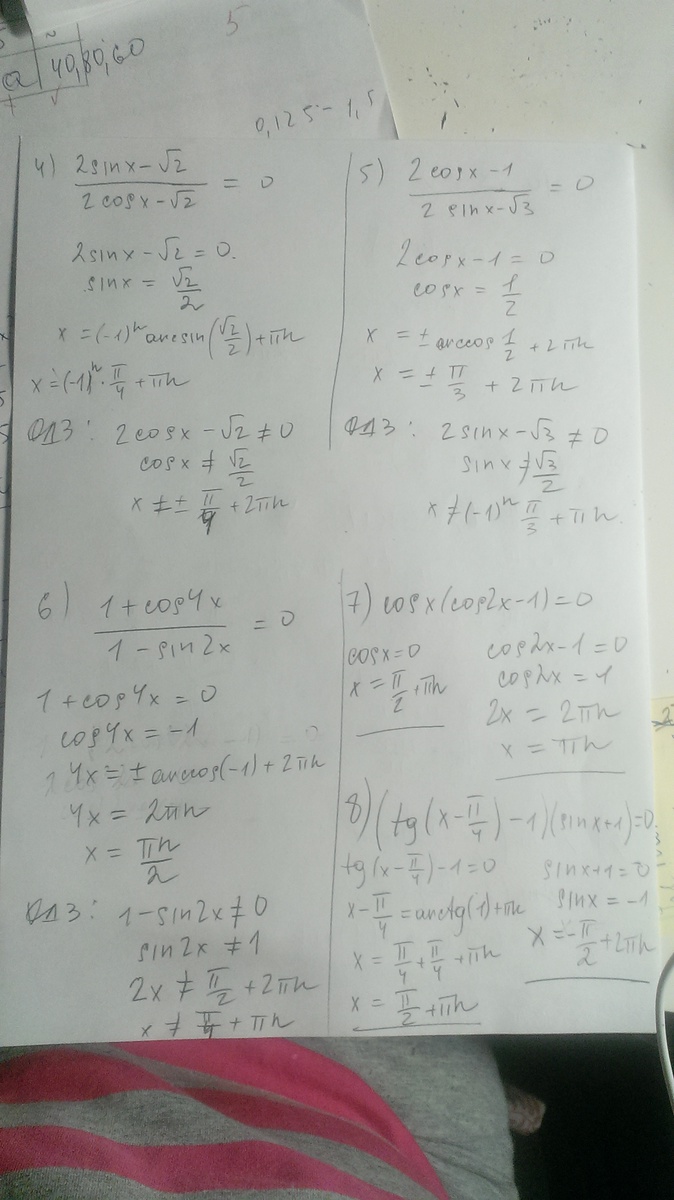 5
a 40,80,60
0,125-1,5
4) (2sinx-√2)/(2cosx-√2) = 0
2sinx-√2=0.
sinx = √2/2
x=(-1)ⁿarcsin(√2/2)+πn
x=(-1)ⁿ·π/4+πn
ОДЗ: 2cosx-√2≠0
cosx≠√2/2
x≠±π/4+2πn
5) (2cosx-1)/(2sinx-√3) = 0
2cosx-1=0
cosx=1/2
x=±arccos1/2+2πn
x=±π/3+2πn
ОДЗ: 2sinx-√3≠0
sinx≠√3/2
x≠(-1)ⁿπ/3+πn.
6) (1+cos4x)/(1-sin2x) = 0
1+cos4x=0
cos4x=-1
4x=±arccos(-1)+2πn
4x=2πn
x=πn/2
ОДЗ: 1-sin2x≠0
sin2x≠1
2x≠π/2+2πn
x≠π/4+πn
7) cosx(cos2x-1)=0
cosx=0
x=π/2+πn
cos2x-1=0
cos2x=1
2x=2πn
x=πn
8) (tg(x-π/4)-1)(sinx+1)=0
tg(x-π/4)-1=0
x-π/4=arctg(1)+πn
x=π/4+π/4+πn
x=π/2+πn
sinx+1=0
sinx=-1
x=-π/2+2πn